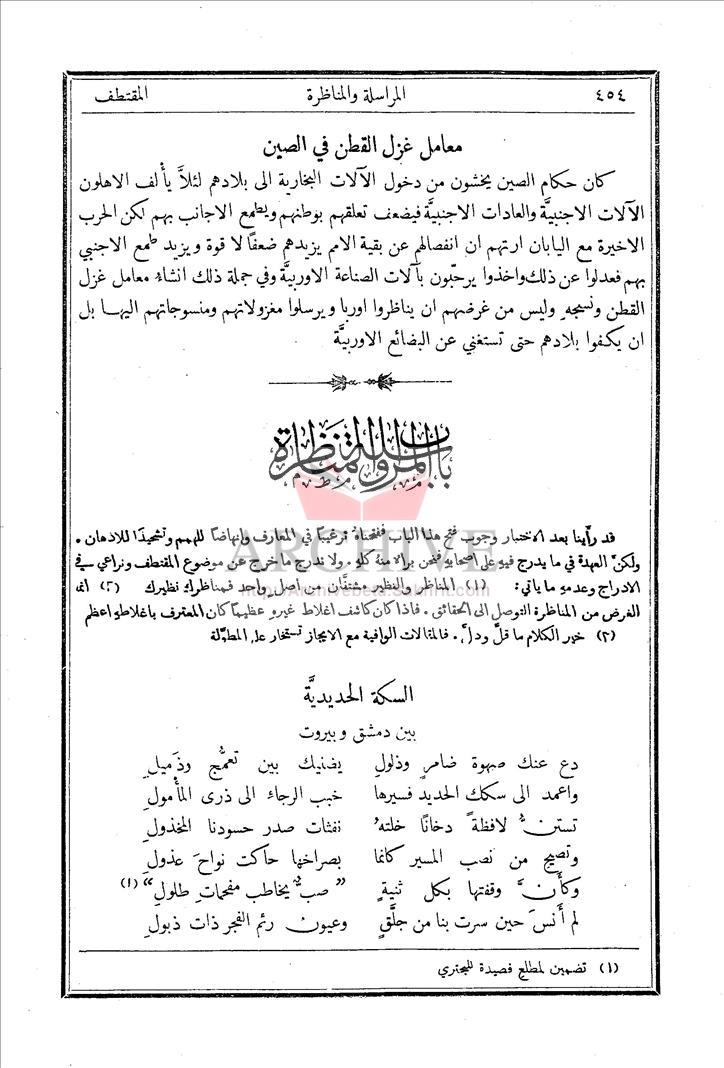 ٤٥٤ المراسلة والمناظرة المقتطف
معامل غزل القطن في الصين
كان حكام الصين يخشون من دخول الآلات البخارية الى بلادهم لئلاَّ يأْلف الاهلون
الآلات الاجنبيَّة والعادات الاجنبيَّة فيضعف تعلقهم بوطنهم ويطمع الاجانب بهم لكن الحرب
الاخيرة مع اليابان ارتهم ان انفصالهم عن بقية الامم يزيدهم ضعفًا لا قوة ويزيد طمع الاجنبي
بهم فعدلوا عن ذلك واخذوا يرحّبون بآلات الصناعة الاوربيَّة وفي جملة ذلك انشاءُ معامل غزل
القطن ونسجهِ وليس من غرضهم ان يناظروا اوربا ويرسلوا مغزولاتهم ومنسوجاتهم اليها بل
ان يكفوا بلادهم حتى تستغني عن البضائع الاوربيَّة
باب المراسلة والمناظرة
قد رأَينا بعد الاختبار وجوب فتح هذا الباب ففتحناهُ ترغيبًا في المعارف وانهاضًا للهمم وتشحيذًا للاذهان .
ولكنَّ العهدة في ما يدرج فيهِ على اصحابهِ فنحن برالا منهُ كلهِ . ولا ندرج ما خرج عن موضوع المقتطف ونراعي في
الادراج وعدمهِ ما ياتي : (١) المناظر والنظير مشتقَّان من اصل واحد فمناظرك نظيرك (٢) انما
الغرض من المناظرة التوصل الى الحقائق . فاذا كان كاشف اغلاط غيرهِ عظيمًا كان المعترف باغلاطهِ اعظم
(٣) خير الكلام ما قلَّ ودلَّ . فالمقالات الوافية مع الايجاز تستخار على المطوَّلة
ARCHIVE
http://Archivebeta.Sakhrit.com
السكة الحديديَّة
بين دمشق وبيروت
دع عنك صهوة ضامرٍ وذلولِ يضنيك بين تعمُّجٍ وذَميلِ
واعمد الى سكك الحديد فسيرها خبب الرجاءِ الى ذرى المأْمولِ
تستنُّ لافظةً دخانًا خلتهُ نفثات صدر حسودنا المخذولِ
وتصيح من نصب المسير كانما بصراخها حاكت نواحَ عذولِ
وكأَنَّ وقفتها بكل ثنيةٍ ”صبٌّ يخاطب مفحمات طلولِ“ (١)
لم أَنسَ حين سرت بنا من جلّقٍ وعيون رئم الفجر ذات ذبولِ
(١) تضمين لمطلع قصيدة للبحتري